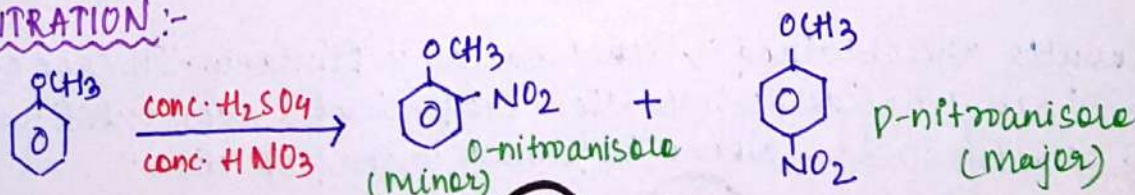 ITRATION:-
OCH3 OCH3 OCH3
conc. H2SO4
conc. HNO3
NO2 +
o-nitroanisole
(Minor)
NO2
p-nitroanisole
(Major)